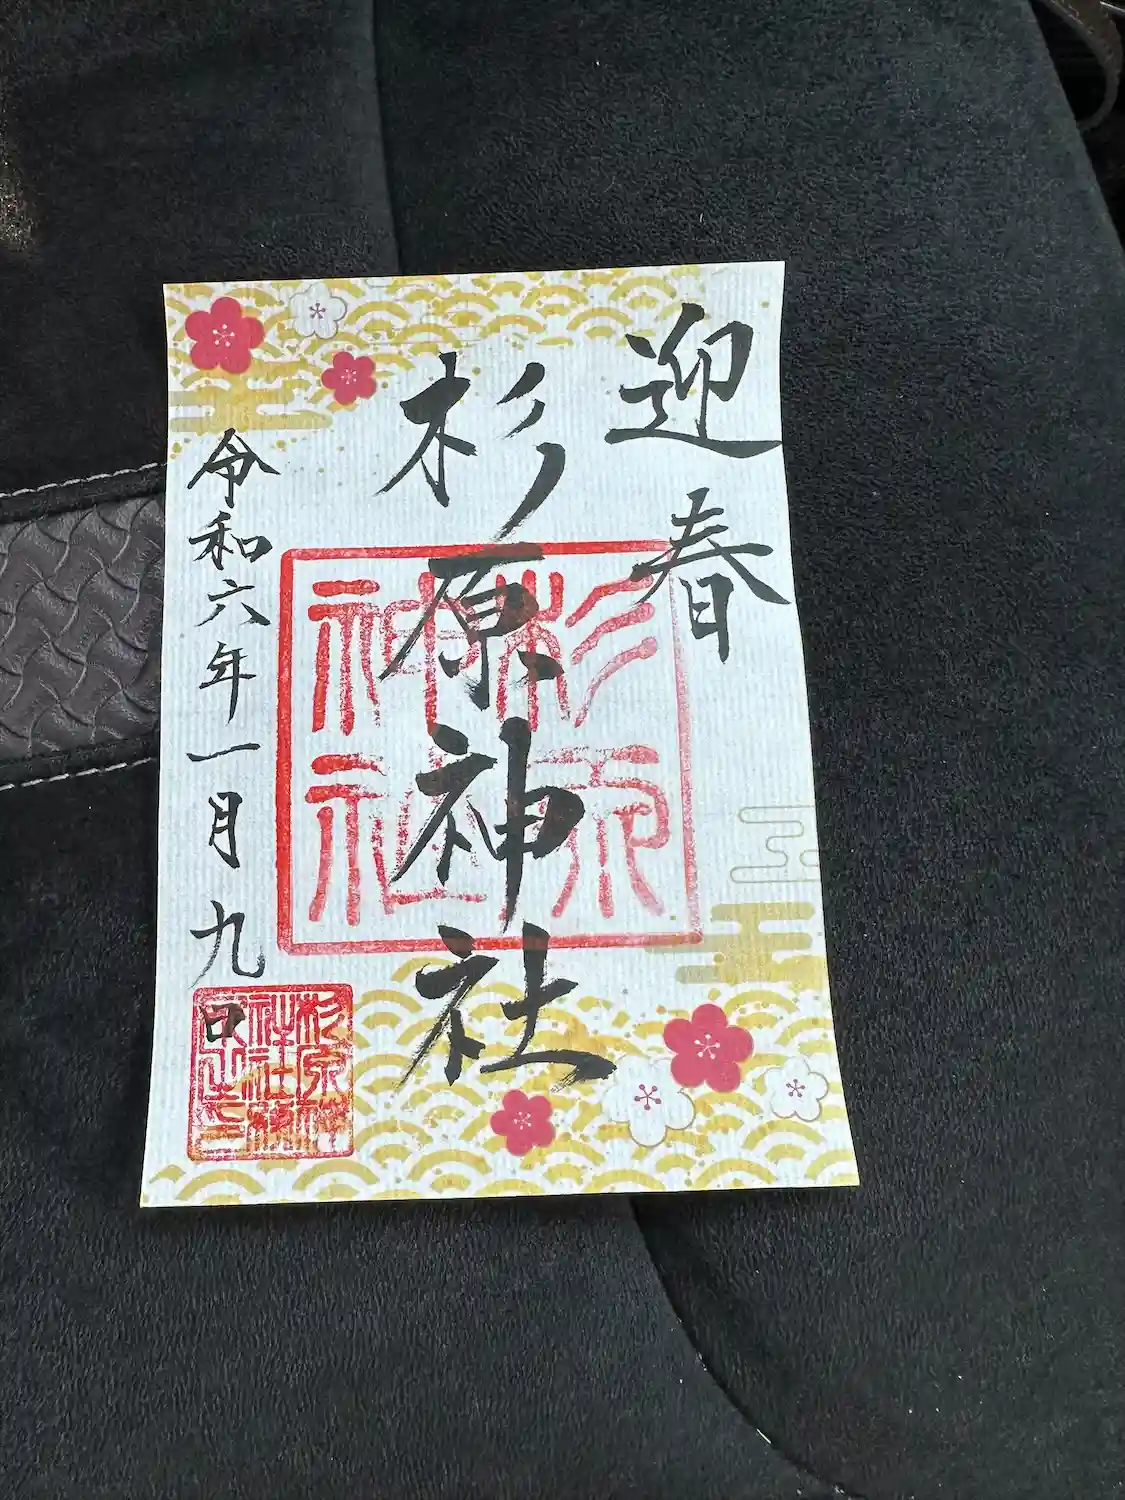 迎春
杉原神社
令和六年一月九日
杉原
神社
杉原神
社社務